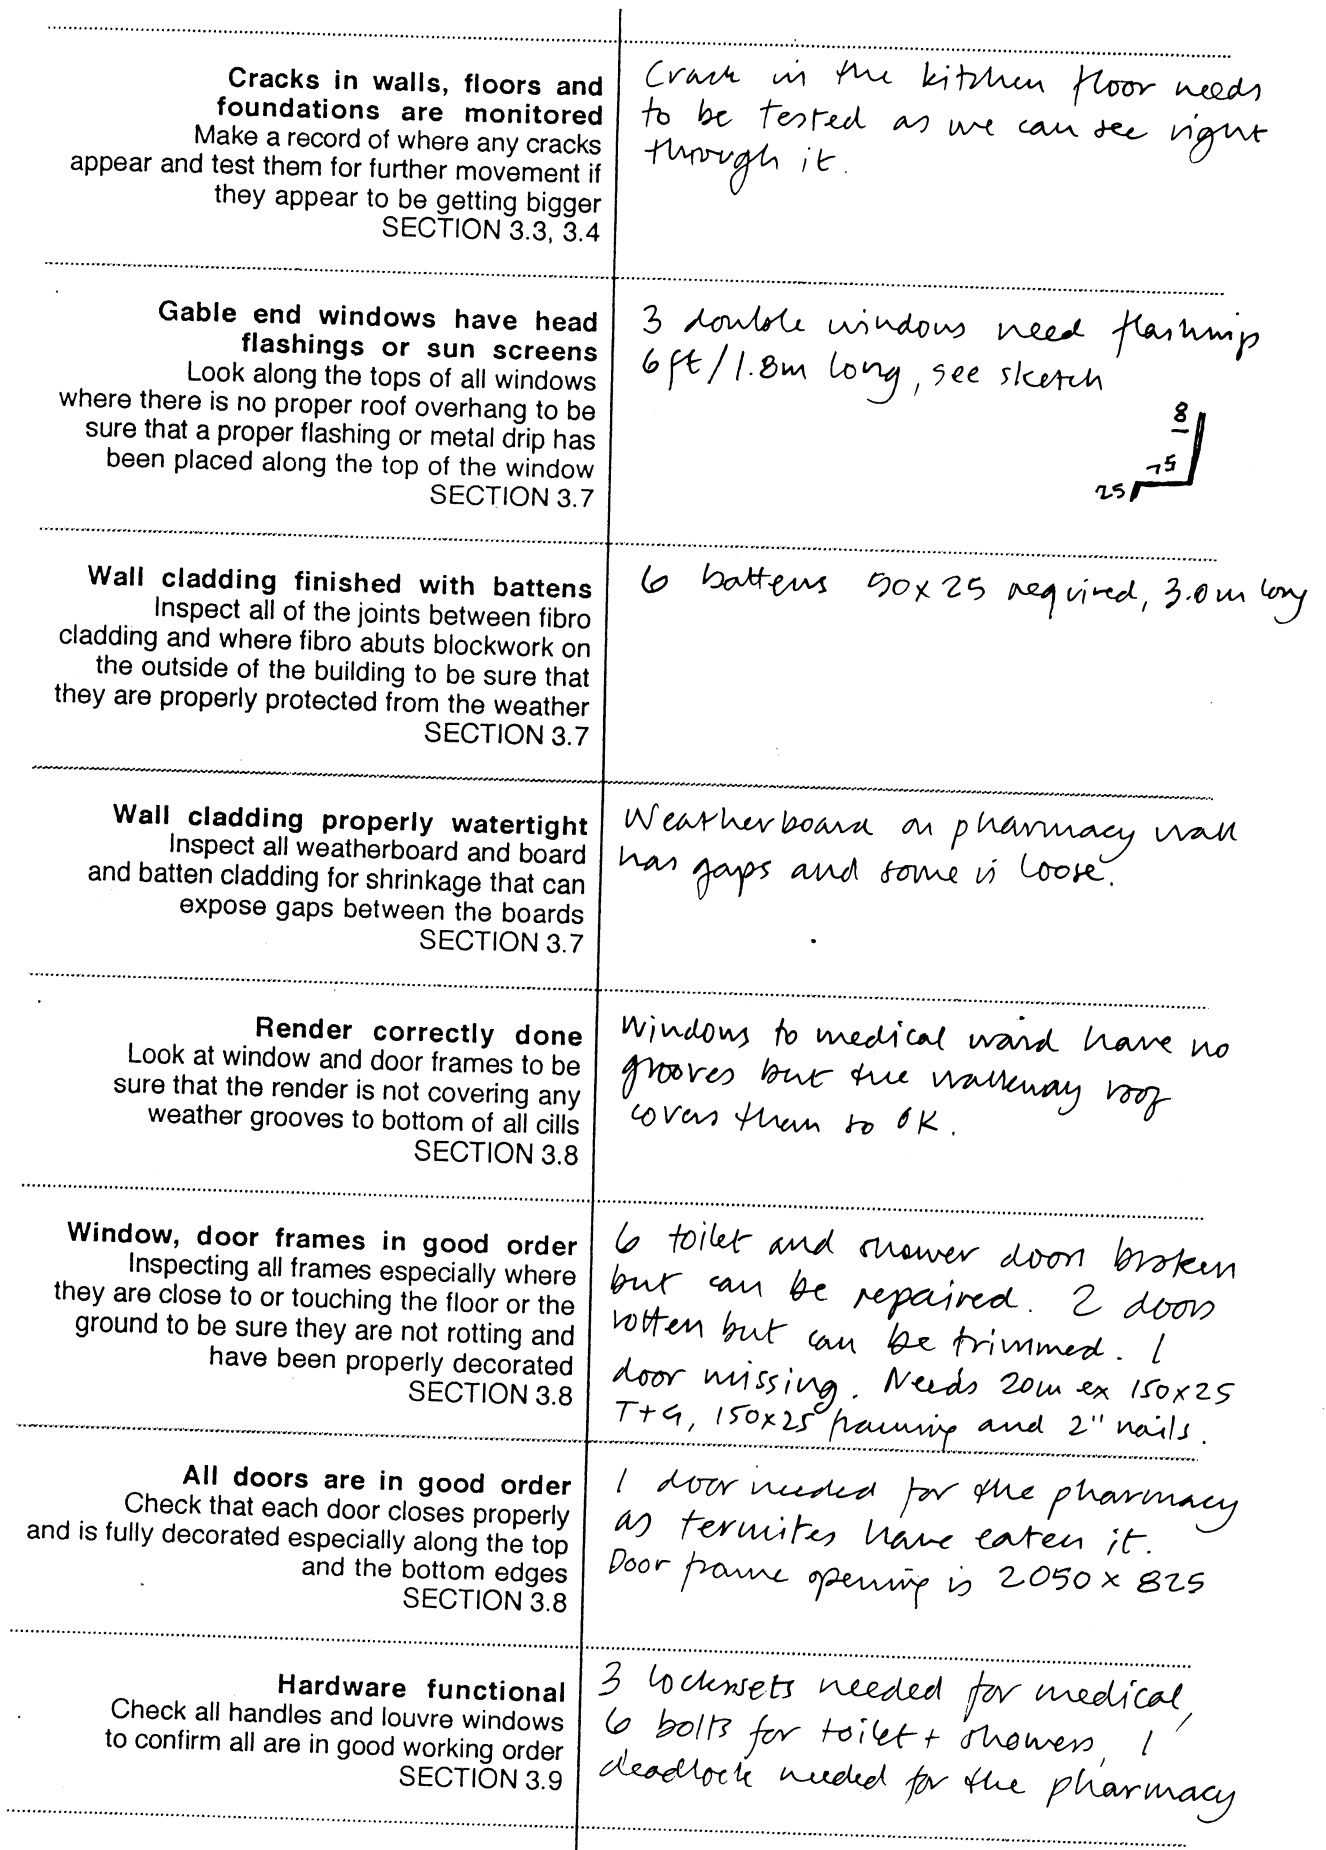 Cracks in walls, floors and
foundations are monitored
Make a record of where any cracks
appear and test them for further movement if
they appear to be getting bigger
SECTION 3.3, 3.4
Crack in the kitchen floor needs
to be tested as we can see right
through it.
Gable end windows have head
flashings or sun screens
Look along the tops of all windows
where there is no proper roof overhang to be
sure that a proper flashing or metal drip has
been placed along the top of the window
SECTION 3.7
3 double windows need flashings
6 ft/1.8m long, see sketch
8
75
25
Wall cladding finished with battens
Inspect all of the joints between fibro
cladding and where fibro abuts blockwork on
the outside of the building to be sure that
they are properly protected from the weather
SECTION 3.7
6 battens 50x25 required, 3.0m long
Wall cladding properly watertight
Inspect all weatherboard and board
and batten cladding for shrinkage that can
expose gaps between the boards
SECTION 3.7
Weatherboard on pharmacy wall
has gaps and some is loose.
Render correctly done
Look at window and door frames to be
sure that the render is not covering any
weather grooves to bottom of all cills
SECTION 3.8
Windows to medical ward have no
grooves but the walkway roof
covers them so OK.
Window, door frames in good order
Inspecting all frames especially where
they are close to or touching the floor or the
ground to be sure they are not rotting and
have been properly decorated
SECTION 3.8
6 toilet and shower doors broken
but can be repaired. 2 doors
rotten but can be trimmed. 1
door missing. Needs 20m ex 150x25
T+G, 150x25 framing and 2" nails.
All doors are in good order
Check that each door closes properly
and is fully decorated especially along the top
and the bottom edges
SECTION 3.8
1 door needed for the pharmacy
as termites have eaten it.
Door frame opening is 2050 x 825
Hardware functional
Check all handles and louvre windows
to confirm all are in good working order
SECTION 3.9
3 locksets needed for medical,
6 bolts for toilet + showers, 1
deadlock needed for the pharmacy